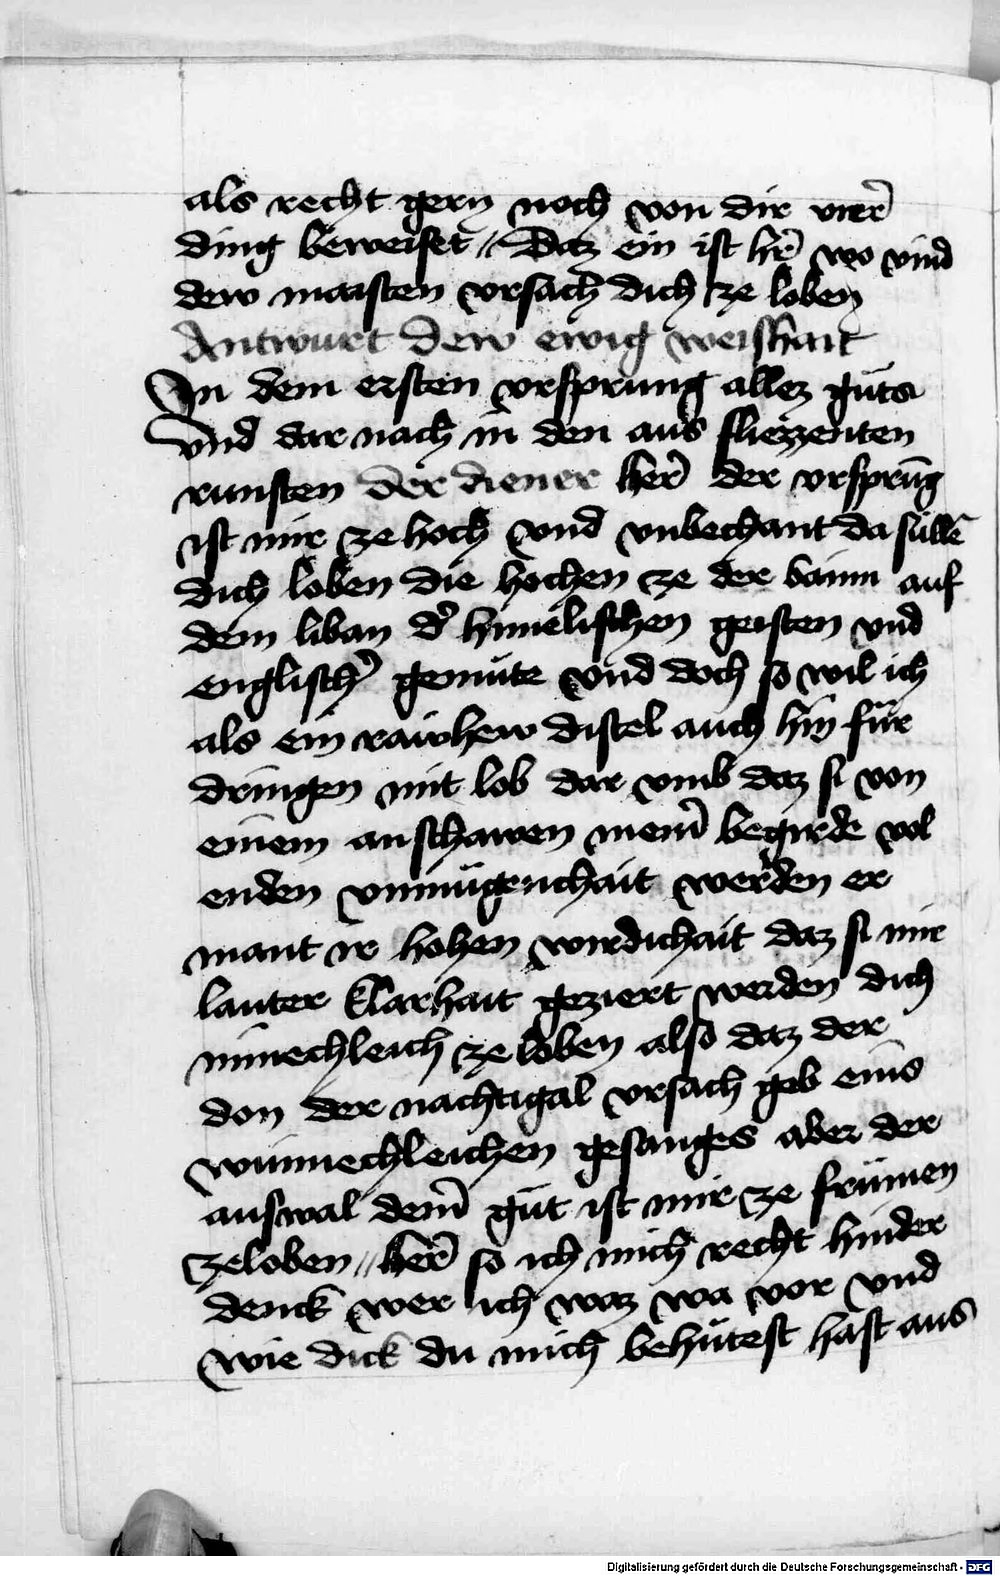 als recht gern noch von dir vier̄
ding beweiset // Daz ein ist hr̄ wo vind
dew maisten vrsach dich ze loben
Antwurt Dew ewig weishait
In dem ersten vrsprung allez guͤts
vnd dar nach in den aus fliezzenten
runsten Der diener her̄ der vrsprūg
ist mir ze hoch vnd vnbechant da suͤllē
dich loben die hochen ze der baum auf
dem liban d' himelischen geisten vnd
englisch' gemuͤte vnd doch so wil ich
als ein rawhew distel auch hin fuͤr
dringen mit lob dar vmb daz si von
einem anschawen mein̄ begirde vol
enden vnmuͤgenchait werden er
mant ir hohen wirdichait daz si mir
lauter klarhait geziert werden dich
minnechleich ze loben also daz der
don der nachtigal vrsach geb eins
wunnechleichen gesanges aber der
auswal dein̄ guͤt ist mir ze fruͤmen
ze loben // her̄ so ich mich recht hinder
denck wer ich waz wa vor vnd
wie dick du mich behuͤtest hast aus
Digitalisierung gefördert durch die Deutsche Forschungsgemeinschaft - DFG